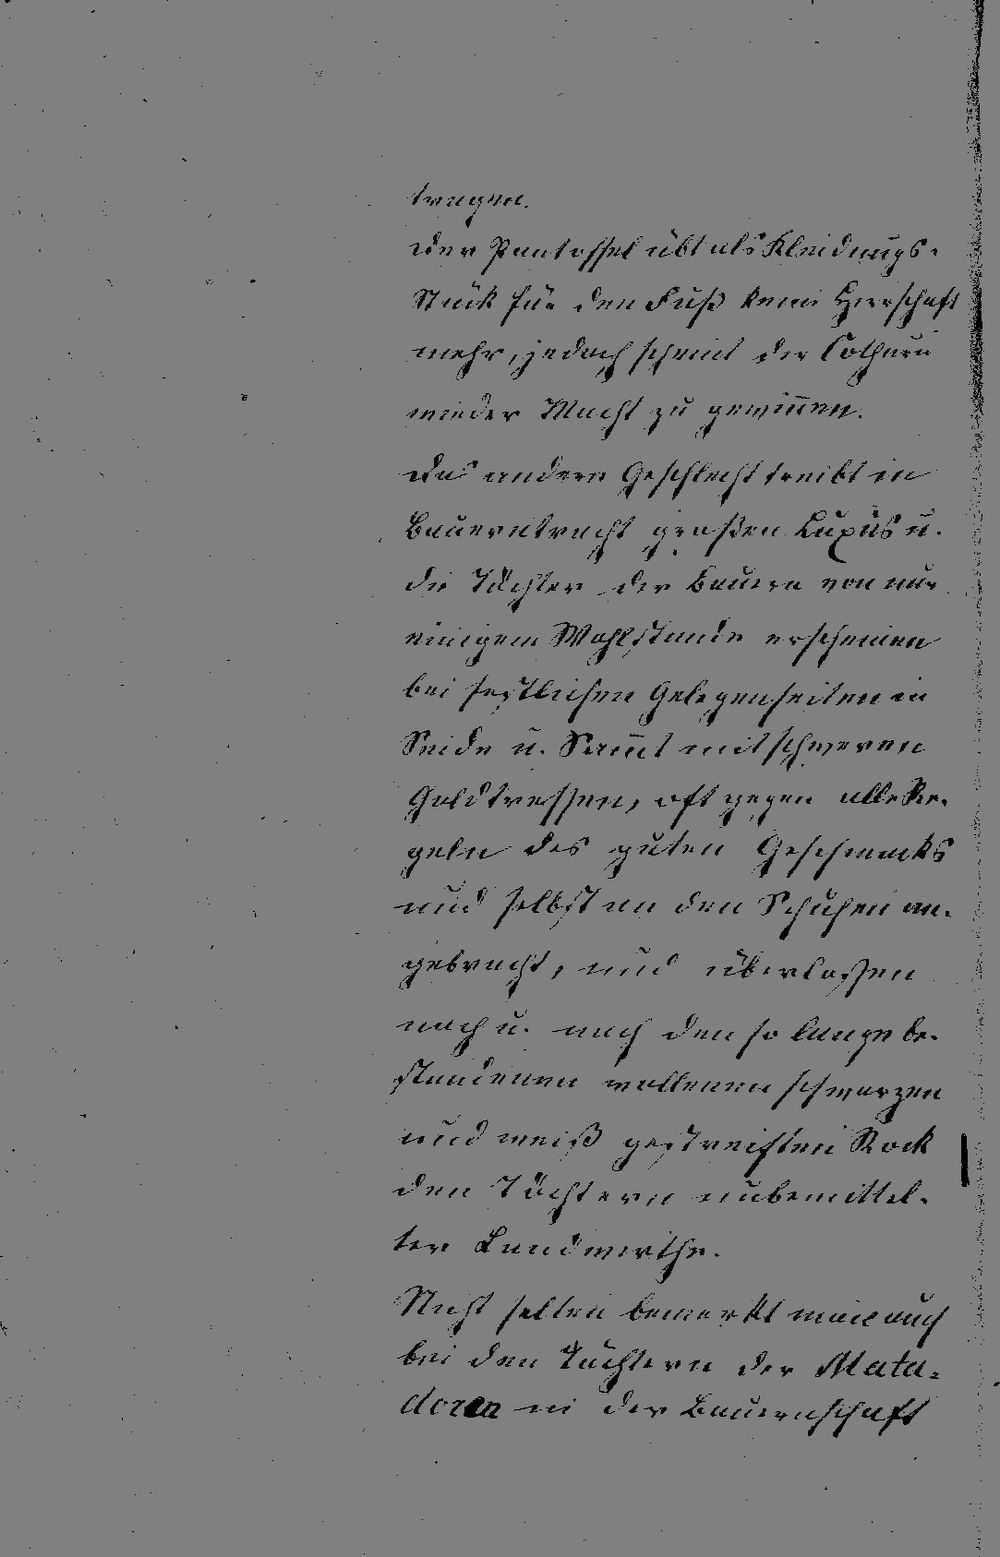 tragen.
Der Pantoffel übt als Kleidungs-
Stück für den Fuß keine Herrschaft
mehr, jedoch scheint der Cothurn
wieder Macht zu gewinnen.
Das andere Geschlecht treibt in
Bauerntracht großen Luxus u.
die Töchter der Bauern von nur
einigem Wohlstande erscheinen
bei festlichen Gelegenheiten in
Seide u. Sam̅t mit schweren
Goldtressen, oft gegen alle Re-
geln des guten Geschmacks
und selbst an den Schuhen an-
gebracht, und überlassen
nach u. nach den so lange be-
standenen wollenen schwarzen
und weiß gestreiften Rock
den Töchtern unbemittel-
ter Landwirthe.
Nicht selten bemerkt man auch
bei den Töchtern der Mata-
doren in der Bauernschaft